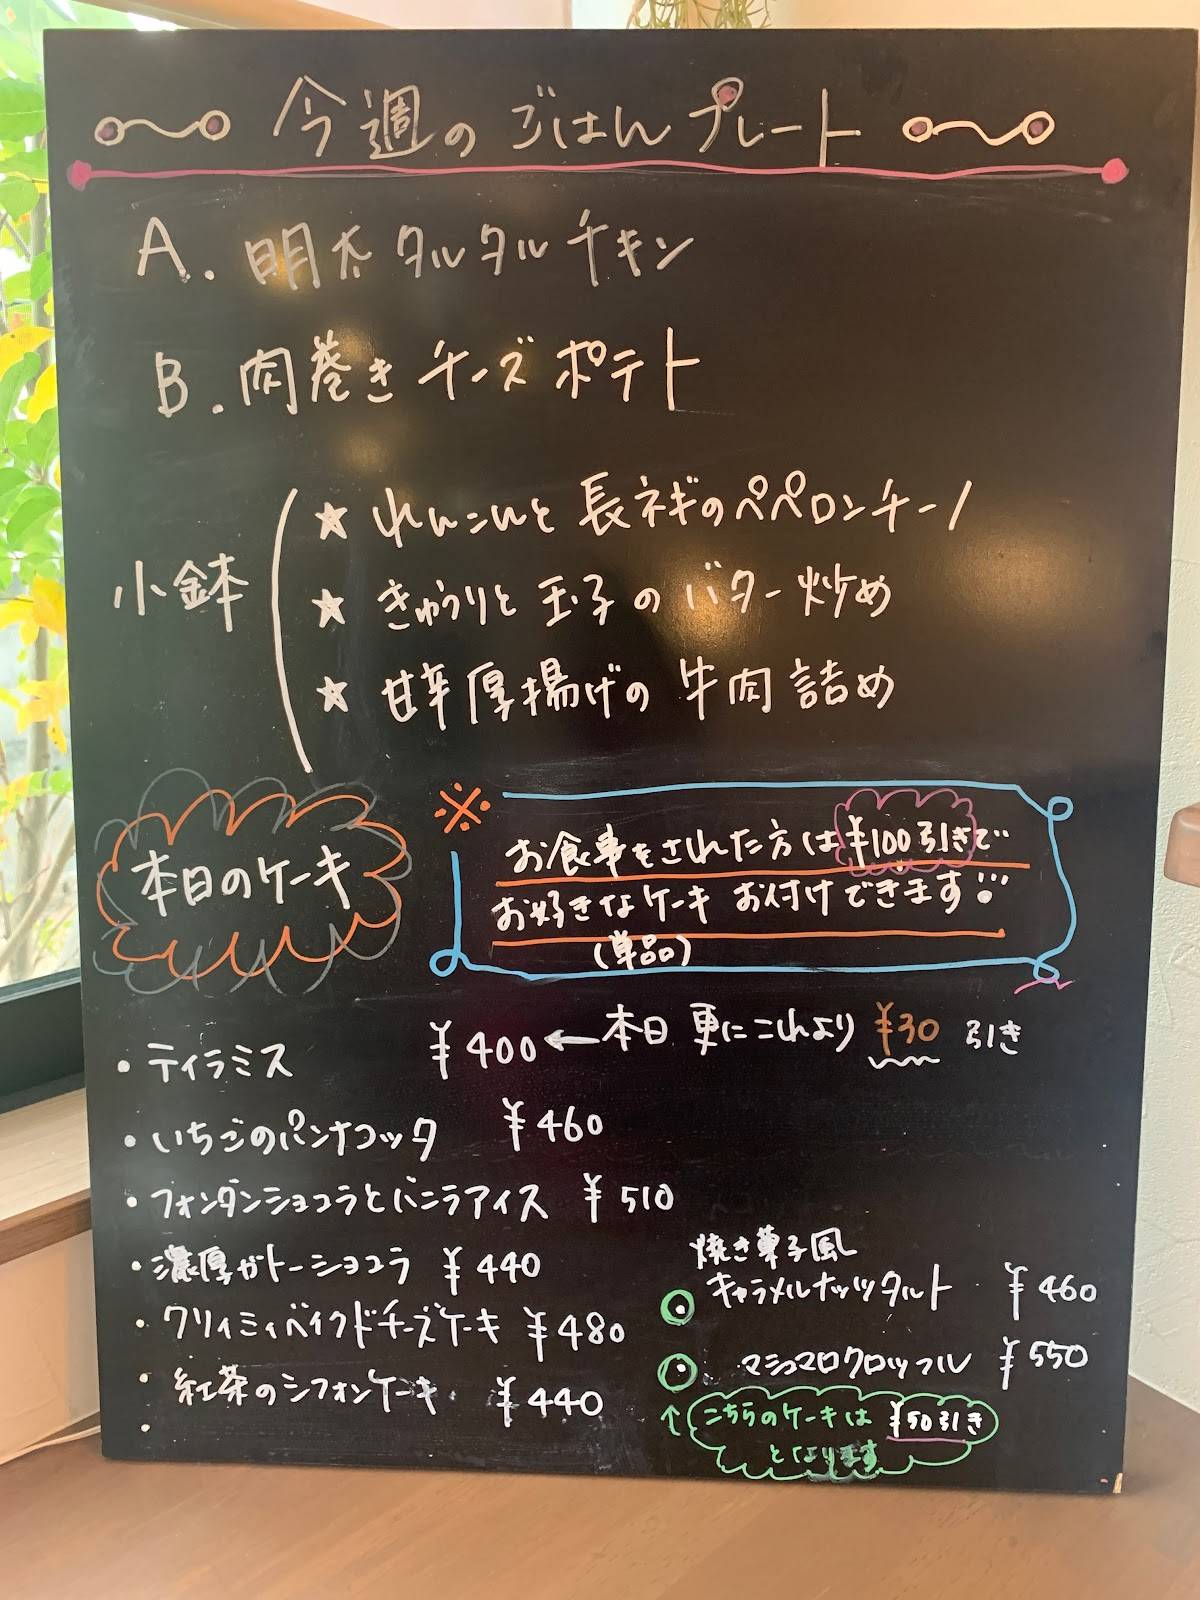 今週のごはんプレート
A. 明太タルタルチキン
B. 肉巻きチーズポテト
小鉢
★ れんこんと長ネギのペペロンチーノ
★ きゅうりと玉子のバター炒め
★ 甘辛厚揚げの牛肉詰め
本日のケーキ
※
お食事をされた方は¥100引きで
お好きなケーキお付けできます!!
(単品)
・ティラミス ¥400 ← 本日更にこれより¥30引き
・いちごのパンナコッタ ¥460
・フォンダンショコラとバニラアイス ¥510
・濃厚ガトーショコラ ¥440
・クリィミィベイクドチーズケーキ ¥480
・紅茶のシフォンケーキ ¥440
・
焼き菓子風
キャラメルナッツタルト ¥460
マシュマロクロッフル ¥550
↑ こちらのケーキは ¥50引き
となります